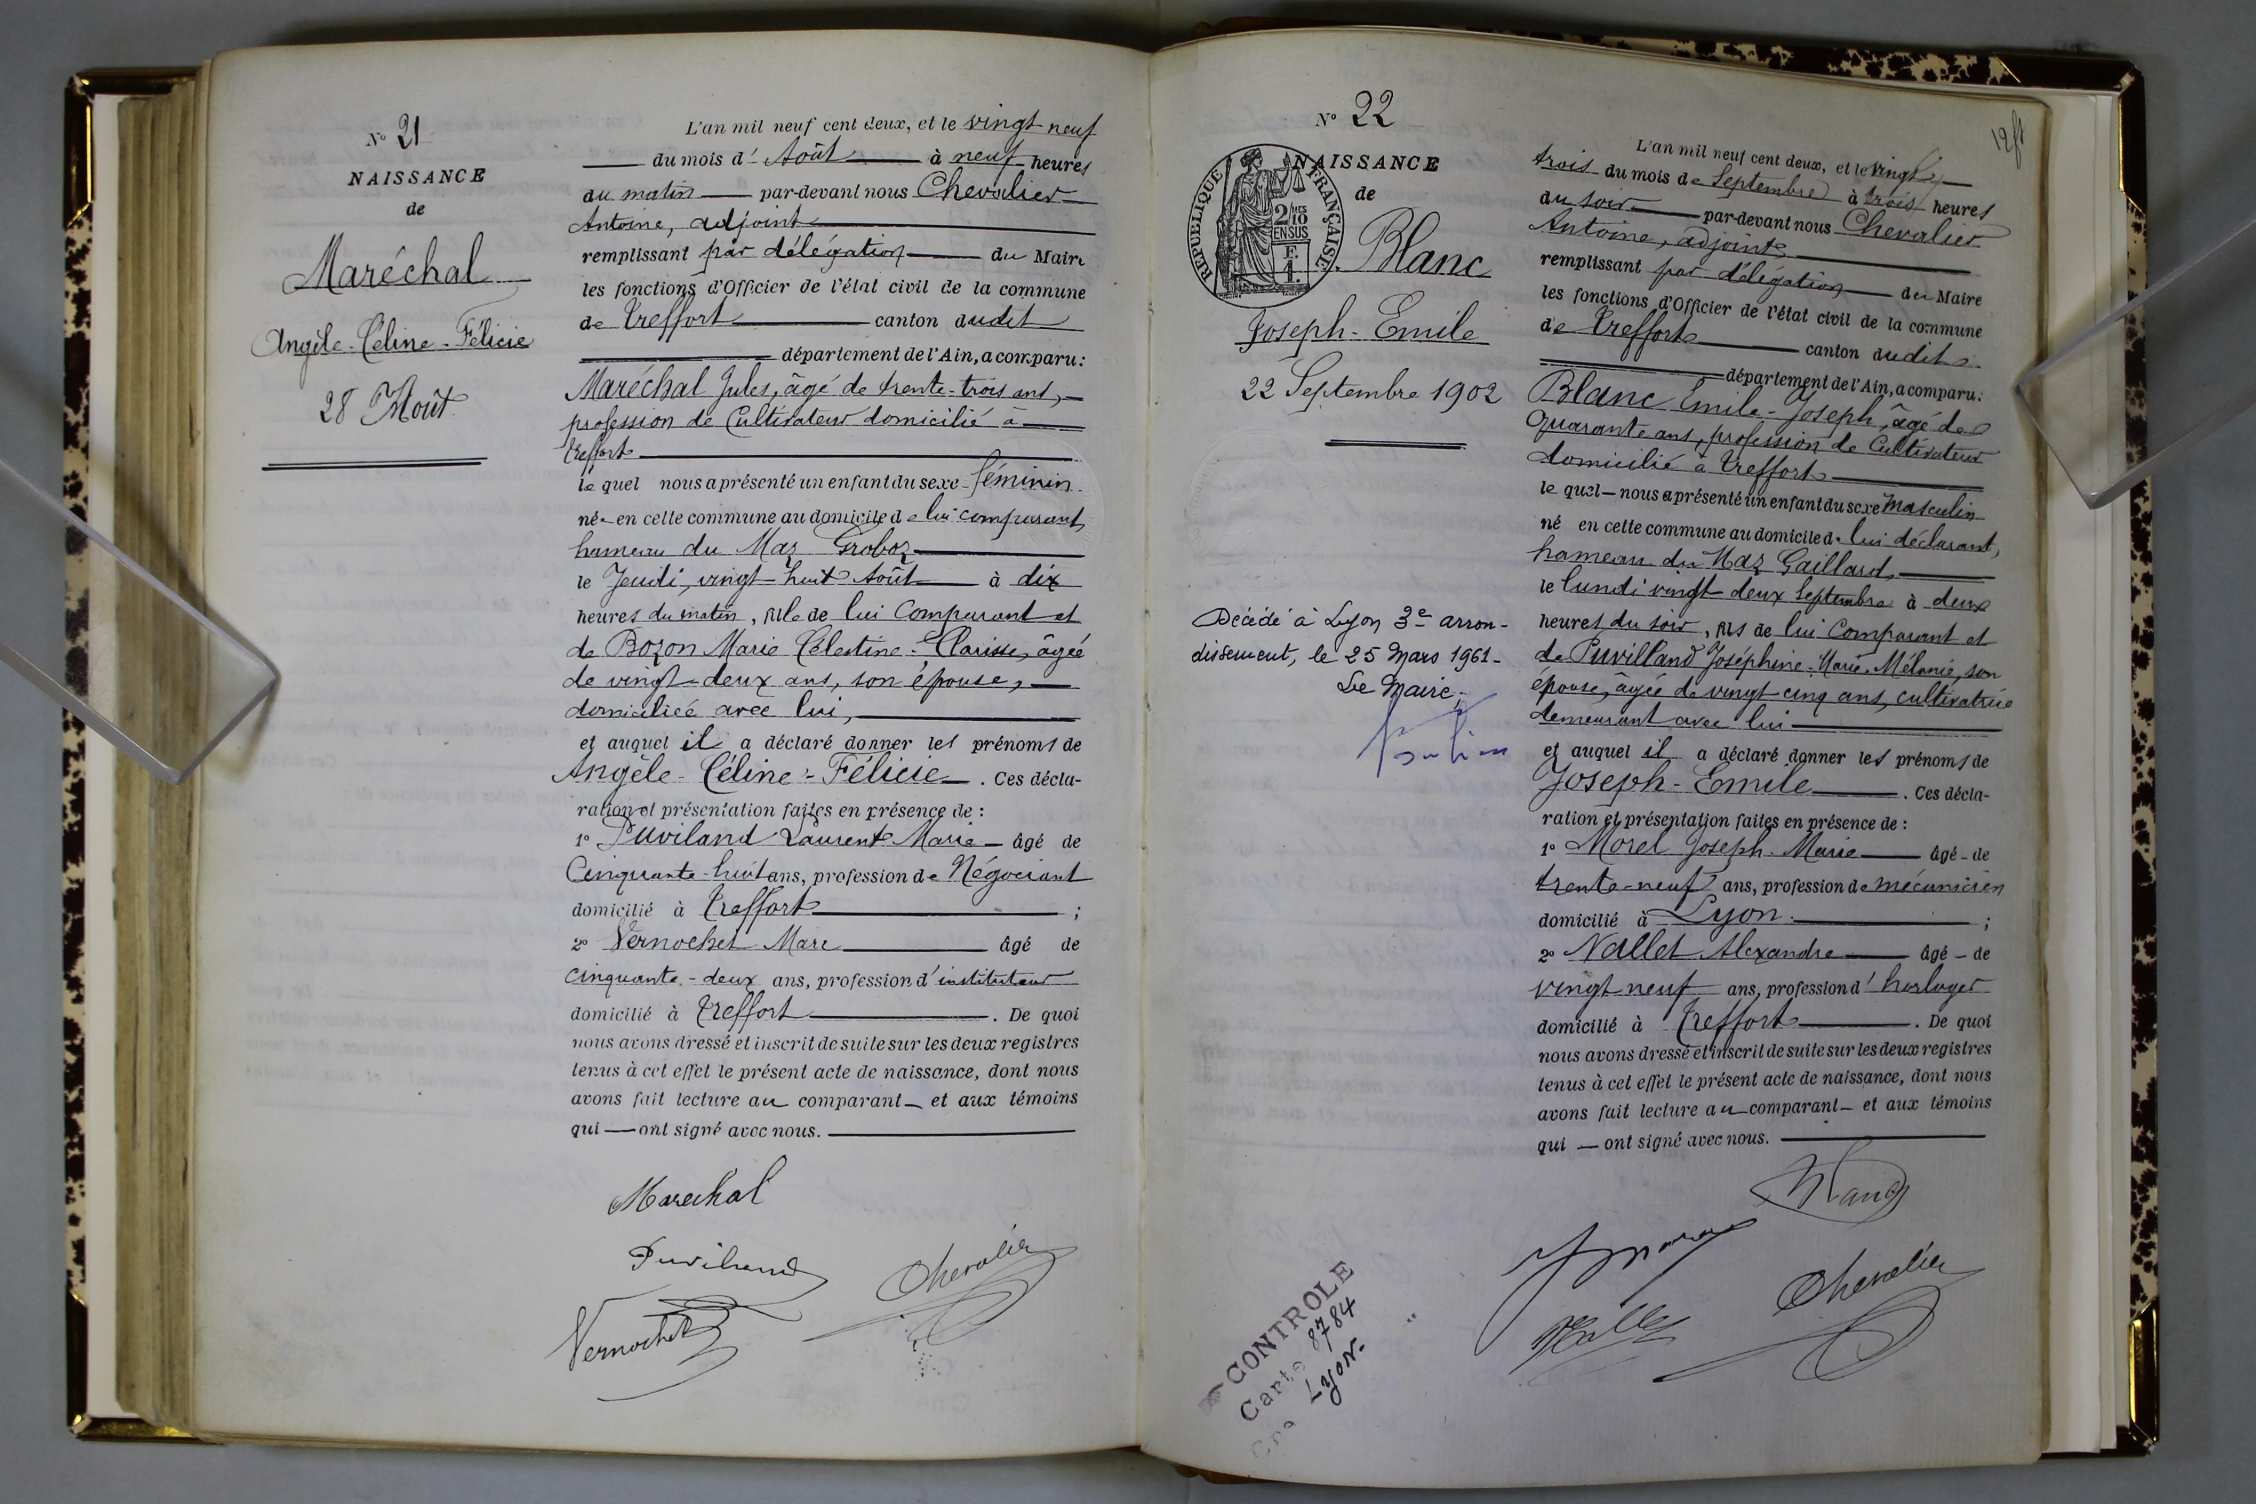 N° 21
NAISSANCE
de
Maréchal
Angèle-Céline-Félicie
28 Août
L'an mil neuf cent deux, et le vingt neuf
du mois d' Août à neuf heures
du matin par-devant nous Chevalier
Antoine, adjoint
remplissant par délégation du Maire
les fonctions d'Officier de l'état civil de la commune
de Treffort canton dudit
département de l'Ain, a comparu:
Maréchal Jules, âgé de trente-trois ans,
profession de Cultivateur domicilié à
Treffort
le quel nous a présenté un enfant du sexe féminin
née en cette commune au domicile de lui comparant,
hameau du Maz Groboz
le Jeudi, vingt-huit Août à dix
heures du matin, fille de lui comparant et
de Bozon Marie Célestine-Clarisse, âgée
de vingt-deux ans, son épouse,
domiciliée avec lui,
et auquel il a déclaré donner les prénoms de
Angèle-Céline-Félicie. Ces décla-
ration et présentation faites en présence de:
1° Puviland Laurent Marie âgé de
Cinquante-huit ans, profession de Négociant
domicilié à Treffort ;
2° Vernochet Marc âgé de
cinquante-deux ans, profession d'instituteur
domicilié à Treffort. De quoi
nous avons dressé et inscrit de suite sur les deux registres
tenus à cet effet le présent acte de naissance, dont nous
avons fait lecture au comparant et aux témoins
qui ont signé avec nous.
Marechal
Puviland
Chevalier
Vernochet
19 ft
N° 22
NAISSANCE
de
REPUBLIQUE FRANÇAISE
2/10 MES
EN SUS
F.
1.
Blanc
Joseph-Emile
22 Septembre 1902
Décédé à Lyon 3e arron-
dissement, le 25 Mars 1961-
Le Maire,
CONTROLE
Carte 8784
Lyon-
L'an mil neuf cent deux, et le vingt
trois du mois de Septembre à trois heures
du soir par-devant nous Chevalier
Antoine, adjoint
remplissant par délégation du Maire
les fonctions d'Officier de l'état civil de la commune
de Treffort canton dudit
département de l'Ain, a comparu:
Blanc Emile-Joseph, âgé de
Quarante ans, profession de Cultivateur
domicilié à Treffort
le quel nous a présenté un enfant du sexe masculin
né en cette commune au domicile de lui déclarant,
hameau du Maz Gaillard,
le lundi vingt deux Septembre à deux
heures du soir, fils de lui comparant et
de Puvilland Joséphine-Marie-Mélanie, son
épouse, âgée de vingt-cinq ans, cultivatrice
demeurant avec lui
et auquel il a déclaré donner les prénoms de
Joseph-Emile. Ces décla-
ration et présentation faites en présence de:
1° Morel Joseph-Marie âgé de
trente-neuf ans, profession de mécanicien
domicilié à Lyon ;
2° Nallet Alexandre âgé de
vingt neuf ans, profession d'horloger
domicilié à Treffort. De quoi
nous avons dressé et inscrit de suite sur les deux registres
tenus à cet effet le présent acte de naissance, dont nous
avons fait lecture au comparant et aux témoins
qui ont signé avec nous.
Blanc
Chevalier